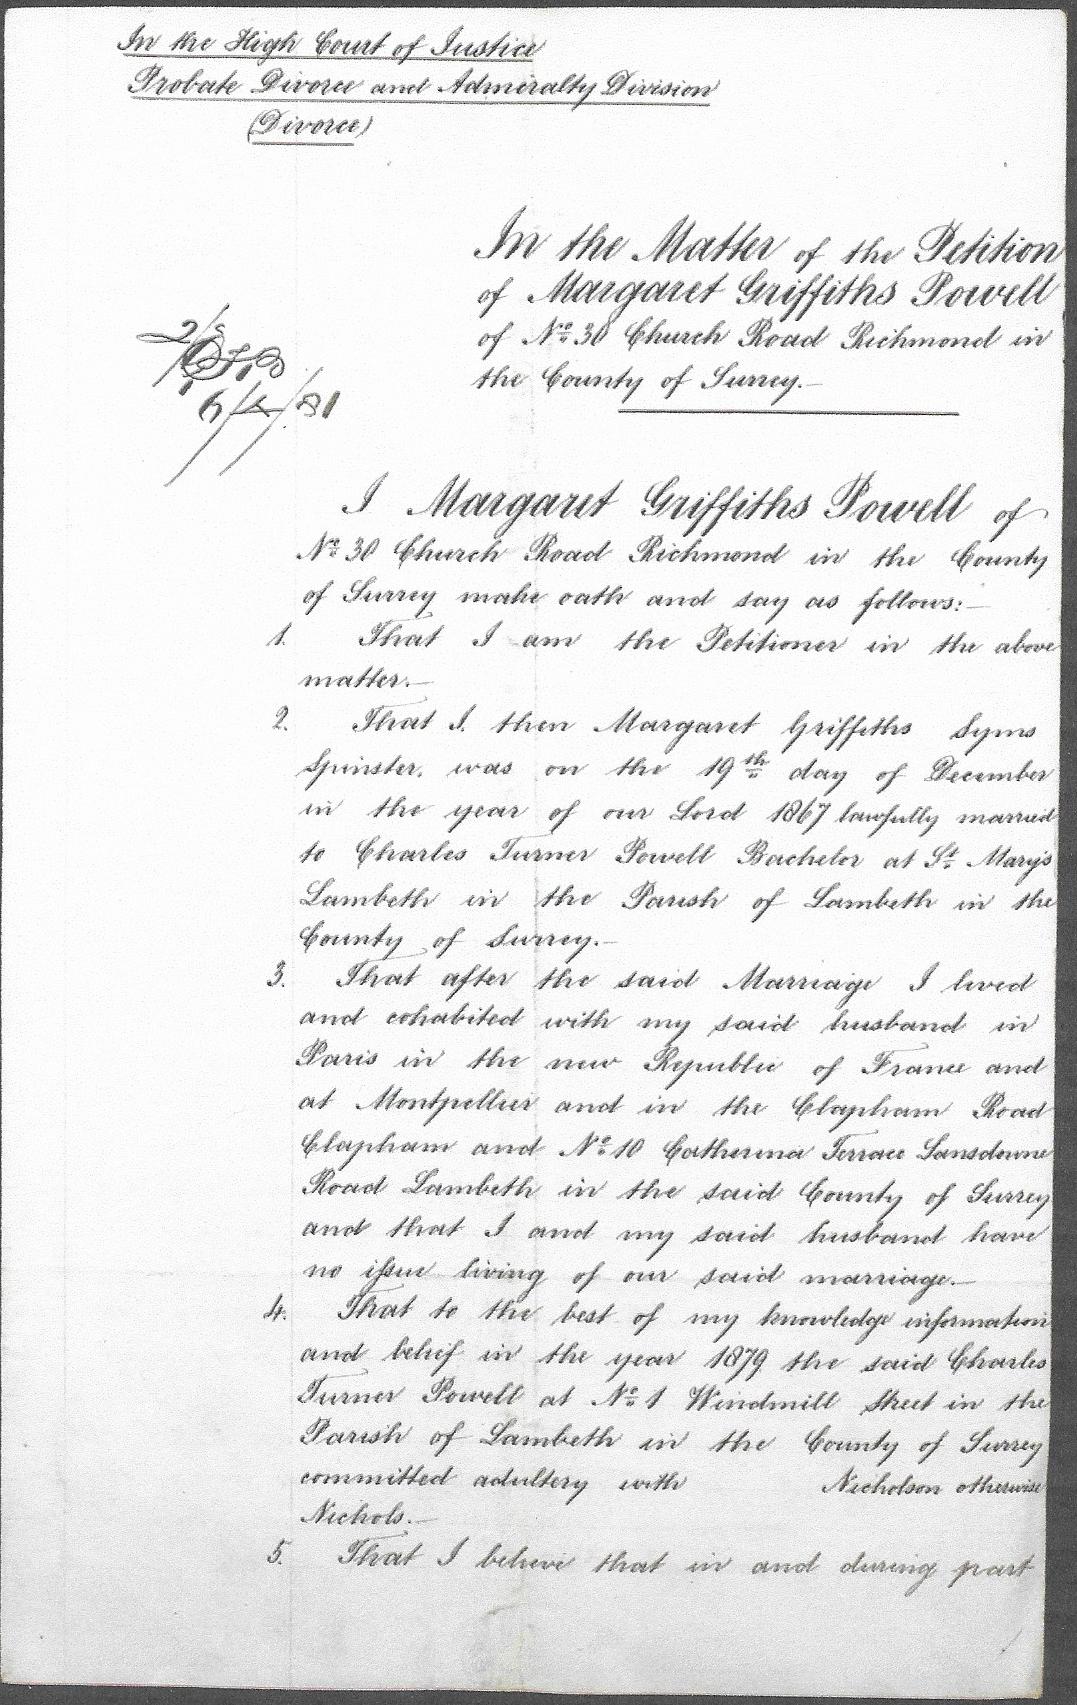 In the High Court of Justice
Probate Divorce and Admiralty Division
(Divorce)
In the Matter of the Petition
of Margaret Griffiths Powell
of No. 30 Church Road Richmond in
the County of Surrey.—
6/4/81
I Margaret Griffiths Powell of
No. 30 Church Road Richmond in the County
of Surrey make oath and say as follows:—
1. That I am the Petitioner in the above
matter.—
2. That I. then Margaret Griffiths Syms
Spinster. was on the 19th day of December
in the year of our Lord 1867 lawfully married
to Charles Turner Powell Bachelor at St. Mary's
Lambeth in the Parish of Lambeth in the
County of Surrey.—
3. That after the said Marriage I lived
and cohabited with my said husband in
Paris in the new Republic of France and
at Montpellier and in the Clapham Road
Clapham and No. 10 Catherina Terrace Lansdowne
Road Lambeth in the said County of Surrey
and that I and my said husband have
no issue living of our said marriage.—
4. That to the best of my knowledge information
and belief in the year 1879 the said Charles
Turner Powell at No. 1 Windmill Street in the
Parish of Lambeth in the County of Surrey
committed adultery with Nicholson otherwise
Nichols.—
5. That I believe that in and during part